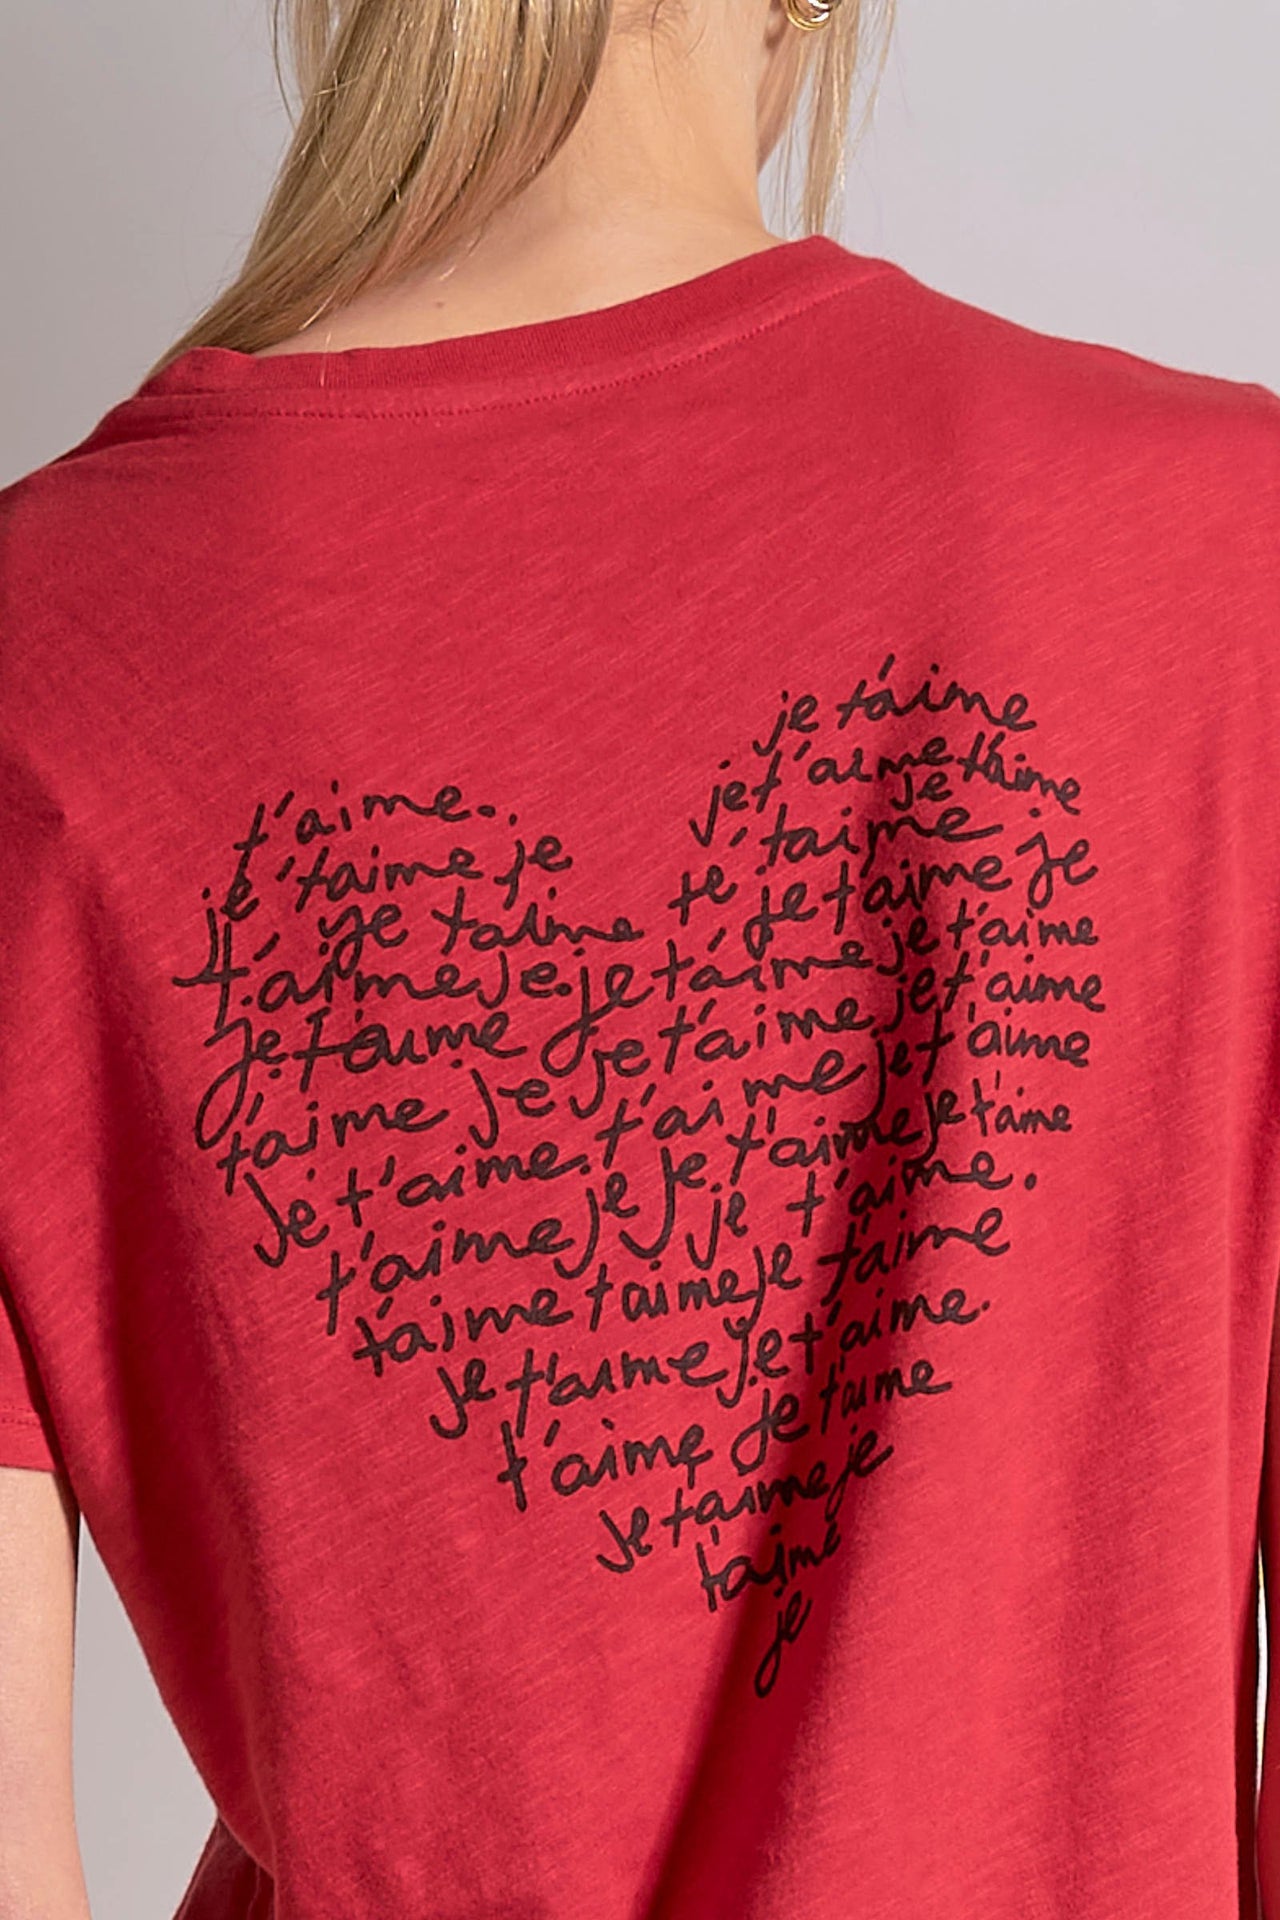 je t'aime
je t'aime t'aime
t'aime. je
je t'aime je te t'aime
je t'aime je t'aime je
t'aime je. je t'aime je t'aime
je t'aime je je t'aime je t'aime
t'aime je je t'aime je t'aime
je t'aime. t'aime je t'aime
t'aime je je t'aime je t'aime
t'aime t'aime je t'aime.
je t'aime je t'aime
t'aime je t'aime.
je t'aime je
t'aime
je